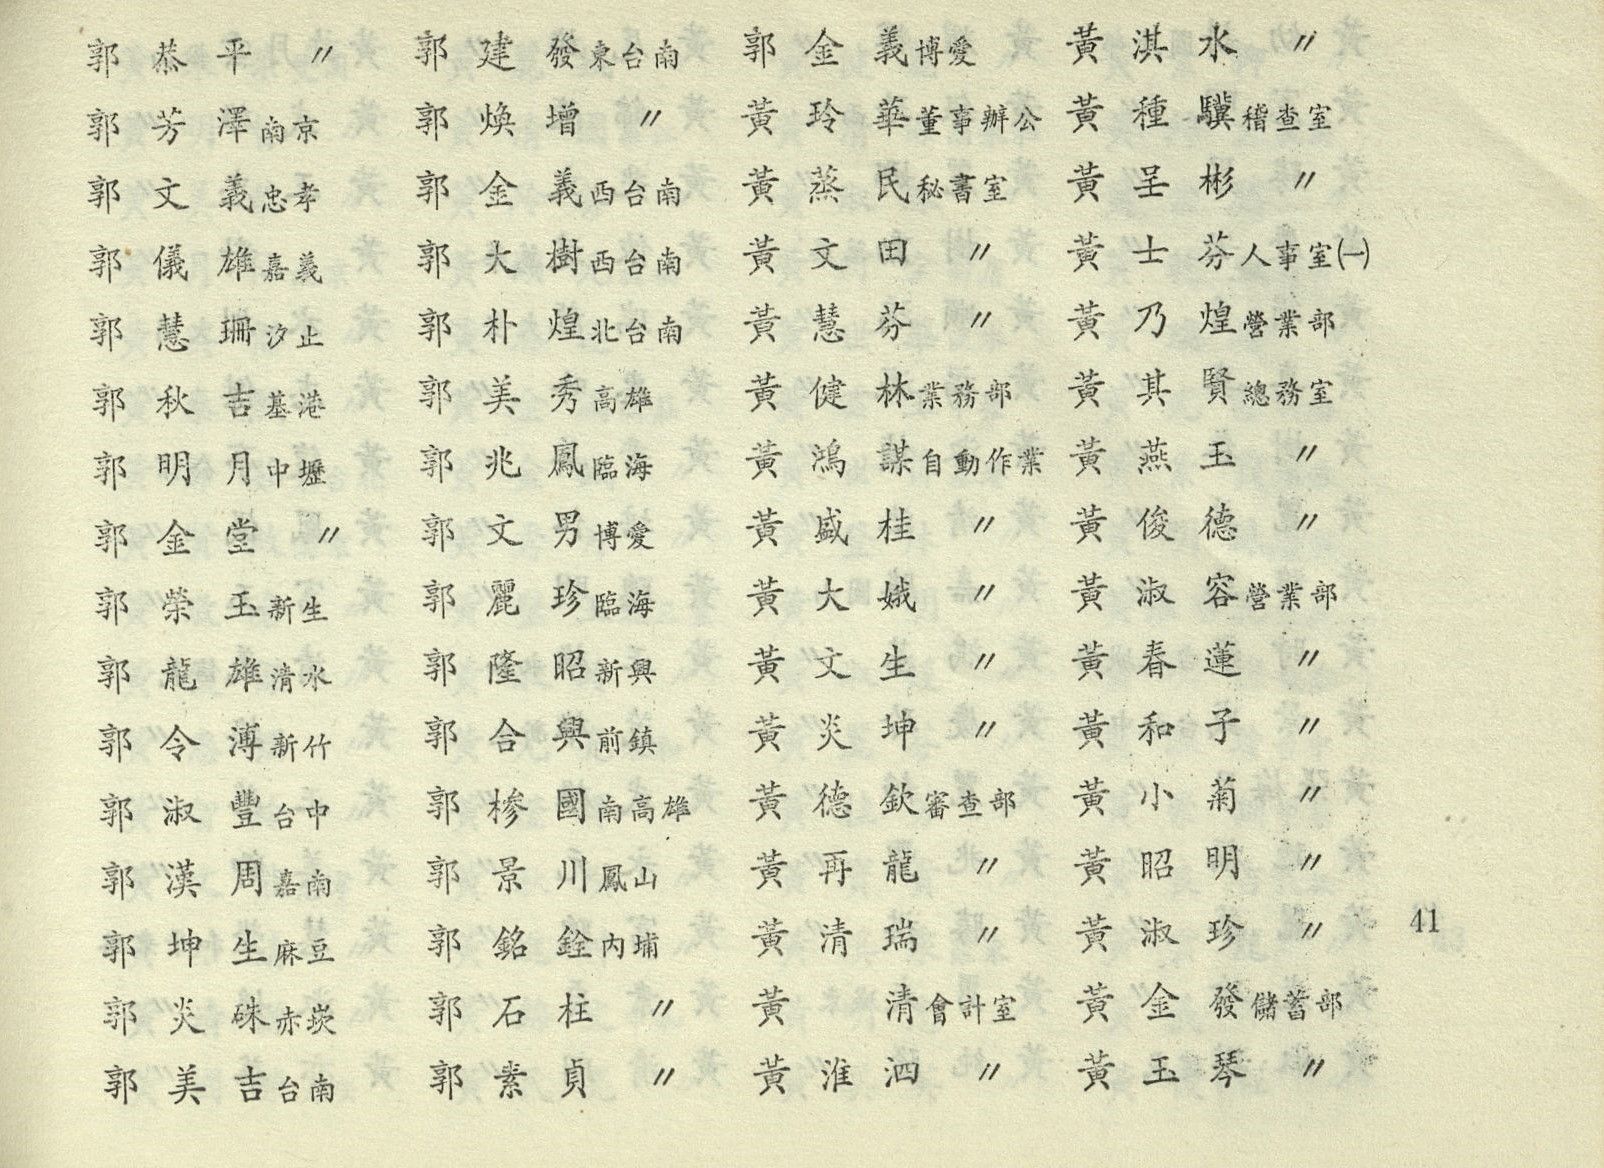 郭恭平 〃
郭芳澤 南京
郭文義 忠孝
郭儀雄 嘉義
郭慧珊 汐止
郭秋吉 基港
郭明月 中壢
郭金堂 〃
郭榮玉 新生
郭龍雄 清水
郭令溥 新竹
郭淑豐 台中
郭漢周 嘉南
郭坤生 麻豆
郭炎硃 赤崁
郭美吉 台南
郭建發 東台南
郭煥增 〃
郭金義 西台南
郭大樹 西台南
郭朴煌 北台南
郭美秀 高雄
郭兆鳳 臨海
郭文男 博愛
郭麗珍 臨海
郭隆昭 新興
郭合興 前鎮
郭槮國 南高雄
郭景川 鳳山
郭銘銓 內埔
郭石柱 〃
郭素貞 〃
郭金義 博愛
黃玲華 董事辦公
黃蒸民 秘書室
黃文田 〃
黃慧芬 〃
黃健林 業務部
黃鴻謀 自動作業
黃盛桂 〃
黃大娥 〃
黃文生 〃
黃炎坤 〃
黃德欽 審查部
黃再龍 〃
黃清瑞 〃
黃清 會計室
黃淮泗 〃
黃淇水 〃
黃種驥 稽查室
黃呈彬 〃
黃士芬 人事室㈠
黃乃煌 營業部
黃其賢 總務室
黃燕玉 〃
黃俊德 〃
黃淑容 營業部
黃春蓮 〃
黃和子 〃
黃小菊 〃
黃昭明 〃
黃淑珍 〃
黃金發 儲蓄部
黃玉琴 〃
41